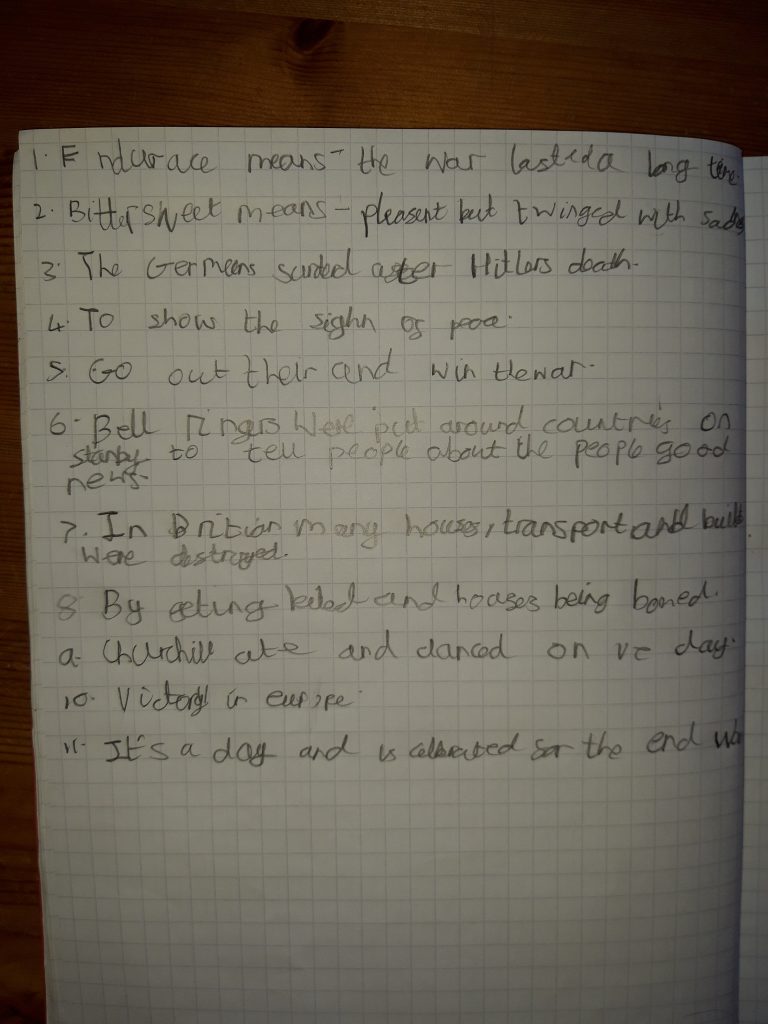 1. Endurace means - the war lasteda long time
2. Bittersweet means - pleasent but twinged with
3. The Germeans surded aster Hitlers death.
4. To show the sighn os peac.
5. Go out their and win thewar.
6. Bell ringers were put around countries on
stanby to tell people about the people good
news.
7. In Britian many houses, transport and
were destroyed.
8 By geting killed and houses being bomed.
9. Churchill ate and danced on ve day.
10. Victory in europe.
11. It's a day and is celberated for the end